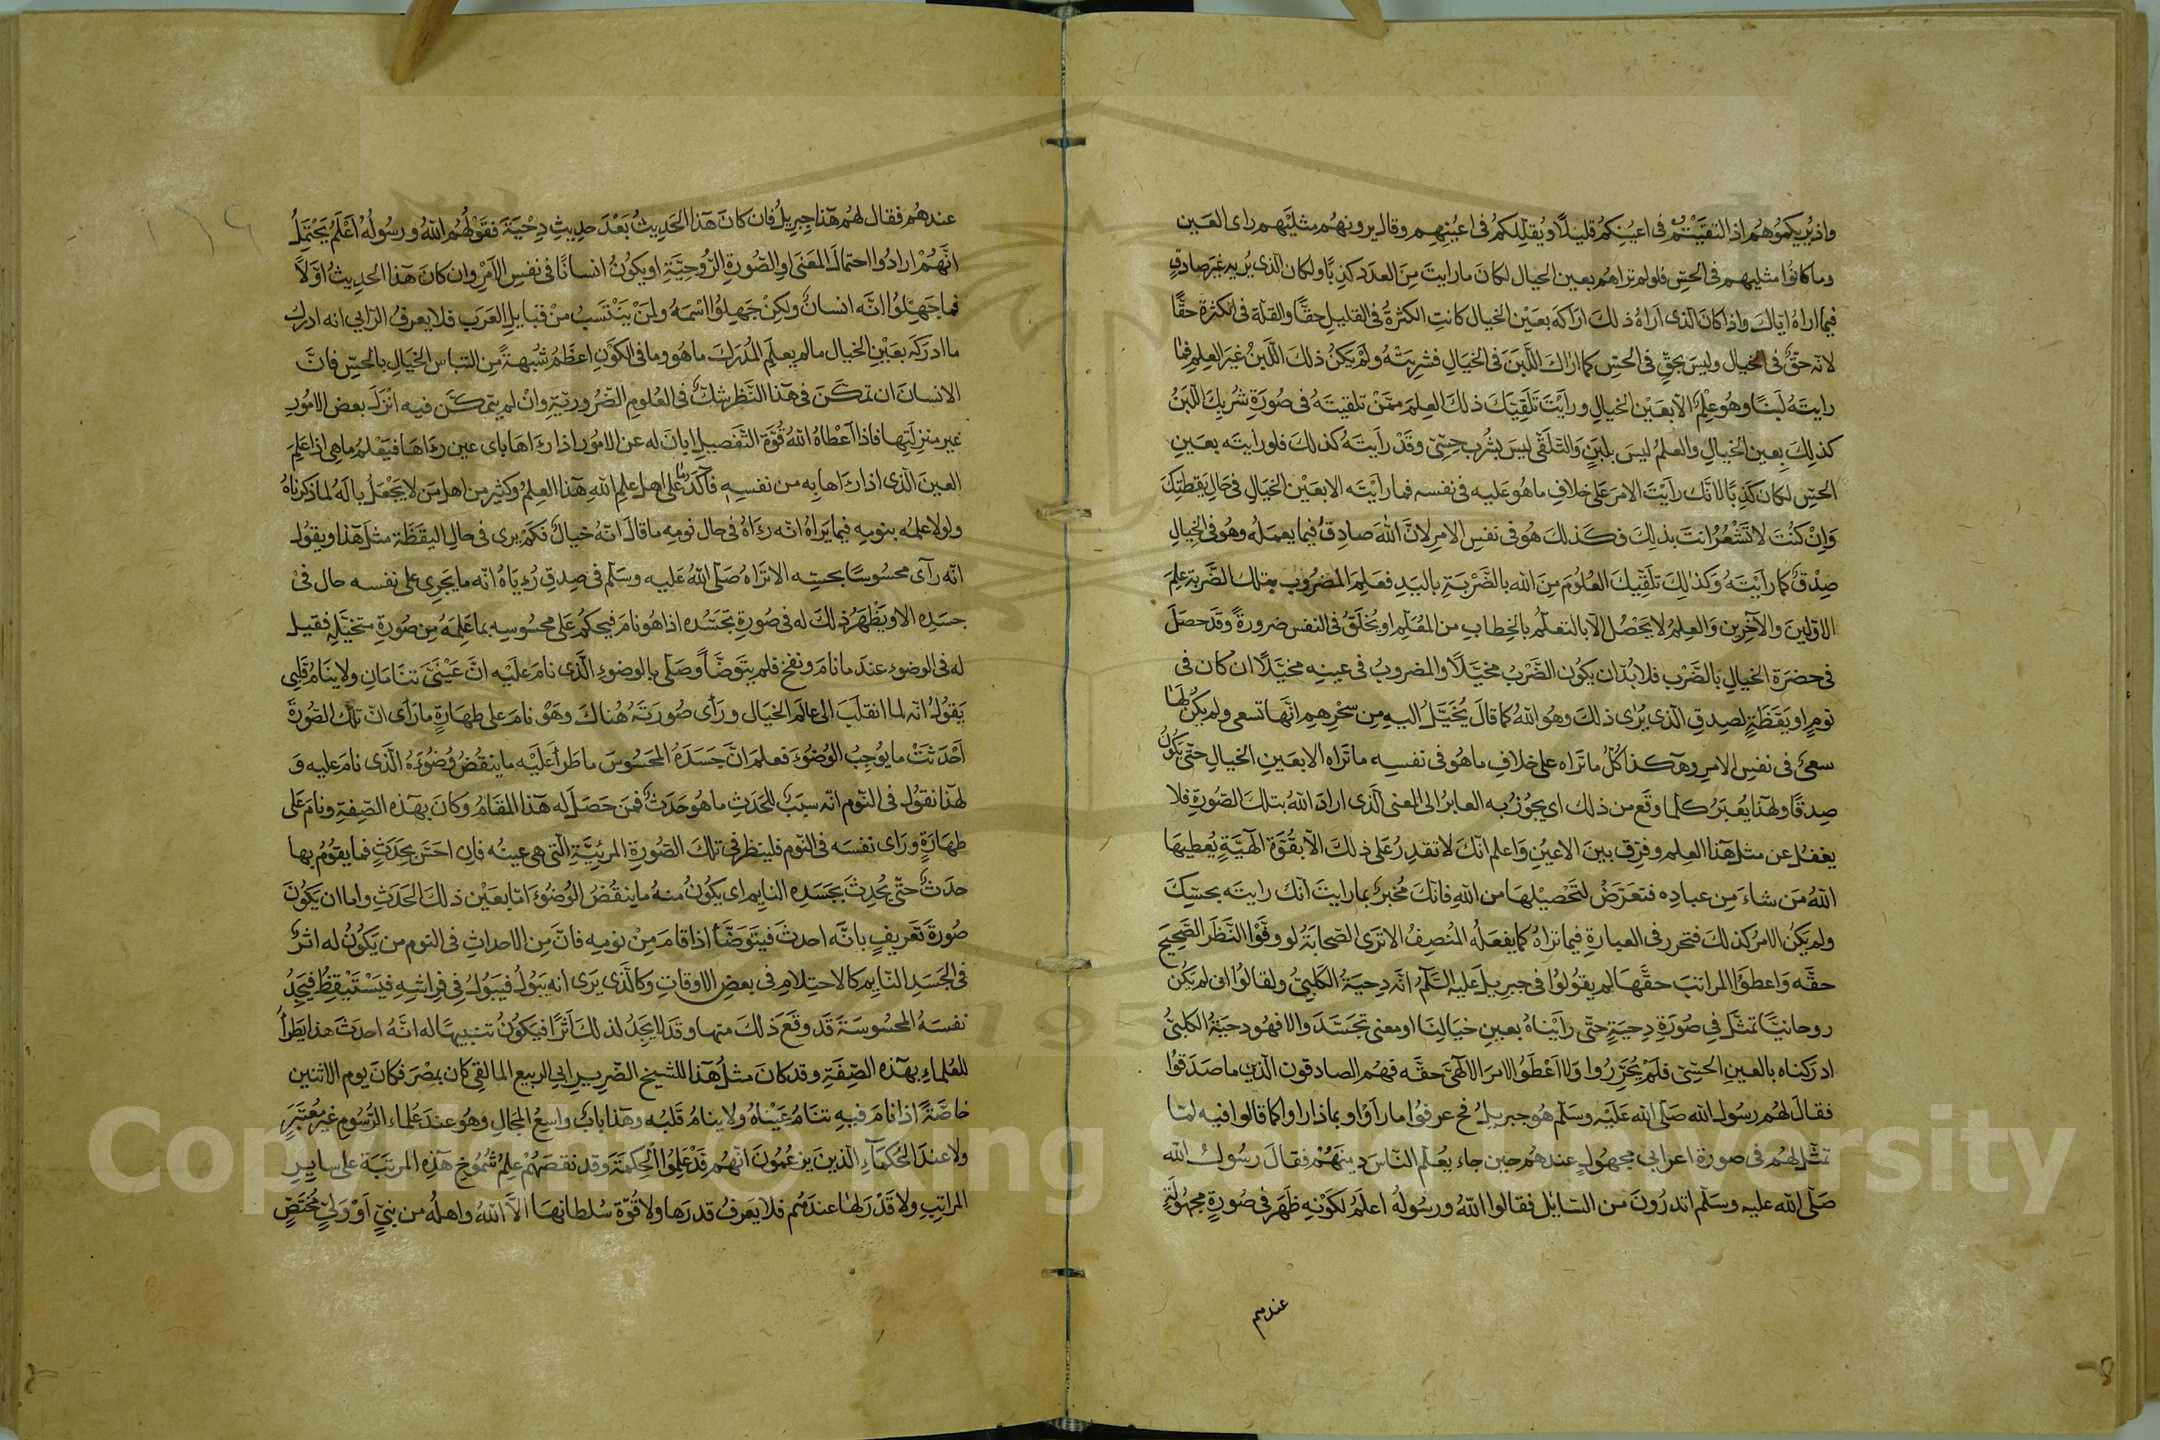 واذ يريكموهم اذ التقيتم في اعينكم قليلاً ويقللكم في اعينهم وقال يرونهم مثليهم راى العين
وما كانوا مثليهم في الحس فلو لم تراهم بعين الخيال لكان ما رايت من العدد كذبًا ولكان الذى يريه غير صادق
فيما اراه اياك واذا كان الذى اراه ذلك اراكه بعين الخيال كانت الكثرة في القليل حقًا والقلة في الكثرة حقًا
لانه حق في الخيال وليس بحق في الحس كما اراك اللبن في الخيال فشربته ولم يكن ذلك اللبن غير العلم فما
رايته لبنًا وهو علم الا بعين الخيال ورايت تلقيك ذلك العلم ممن تلقيته في صورة شربك اللبن
كذلك بعين الخيال والعلم ليس بلبن والتلقى ليس بشرب حسي وقد رايته كذلك فلو رايته بعين
الحس لكان كذبًا لانك رايت الامر على خلاف ما هو عليه في نفسه فما رايته الا بعين الخيال في حال يقظتك
وان كنت لا تشعر انت بذلك فكذلك هو في نفس الامر لان الله صادق فيما يعمله وهو في الخيال
صدق كما رايته وكذلك تلقيك العلوم من الله بالضربة باليد فعلم المضروب بتلك الضربة علم
الاولين والآخرين والعلم لا يحصل الا بالتعلم بالخطاب من المعلم او بخلق في النفس ضرورة وقد حصل
في حضرة الخيال بالضرب فلا بد ان يكون الضرب مخيلًا والمضروب في عينه مخيلًا ان كان في
نوم او يقظة لصدق الذي يرى ذلك وهو الله كما قال يخيل اليه من سحرهم انها تسعى ولم يكن لها
سعي في نفس الامر وهكذا كل ما تراه على خلاف ما هو في نفسه ما تراه الا بعين الخيال حتى يكون
صدقًا ولهذا يعبر كلما وقع من ذلك اي يجوز به العابر الى المعنى الذي اراد الله بتلك الصورة فلا
يغفل عن مثل هذا العلم وفرق بين الاعين واعلم انك لا تقدر على ذلك الا بقوة الهية يعطيها
الله من شاء من عباده فتعرض لتحصيلها من الله فانك مخبر بما رايت انك رايته بحسك
ولم يكن الامر كذلك فتحرر في العبارة فيما تراه كما يفعله المنصف الا ترى الصحابة لو وفوا النظر الصحيح
حقه واعطوا المراتب حقها لم يقولوا في جبريل عليه السلم انه دحية الكلبي ولقالوا ان لم يكن
روحانيًا تمثل في صورة دحية حتى رايناه بعين خيالنا او معنى تجسد والا فهو دحية الكلبي
ادركناه بالعين الحسي فلم يحرروا ولا اعطوا الامر الالهي حقه فهم الصادقون الذين ما صدقوا
فقال لهم رسول الله صلى الله عليه وسلم هو جبريل فح عرفوا ما راوا وبماذا راوا كما قالوا فيه لما
تمثل لهم في صورة اعرابي مجهول عندهم حين جاء يعلم الناس دينهم فقال رسول الله
صلى الله عليه وسلم اتدرون من السايل فقالوا الله ورسوله اعلم لكونه ظهر في صورة مجهولة
عندهم
عندهم فقال لهم هذا جبريل فان كان هذا الحديث بعد حديث دحية فقولهم الله ورسوله اعلم يحتمل
انهم ارادوا احتمال المعنى او الصورة الروحية او يكون انسانًا في نفس الامر وان كان هذا الحديث اولاً
فما جهلوا انه انسان ولكن جهلوا اسمه ولمن ينتسب من قبايل العرب فلا يعرف الرايي انه ادرك
ما ادركه بعين الخيال ما لم يعلم المدرك ما هو وما في الكون اعظم شبهة من التباس الخيال بالحس فان
الانسان ان تمكن في هذا النظر شك في العلوم الضرورية وان لم يتمكن فيه انزل بعض الامور
غير منزلتها فاذا اعطاه الله قوة التفصيل ابان له عن الامور اذا رءاها باي عين رءاها فيعلم ما هي اذا علم
العين الذي اذا رءاها به من نفسه فآكد ما على اهل علم الله هذا العلم وكثير من اهل من لا يجعل باله لما ذكرناه
ولولا علمه بنومه فيما يراه انه رءاه في حال نومه ما قال انه خيال فكم يرى في حال اليقظة مثل هذا ويقول
انه رآى محسوسًا بحسه الا تراه صلى الله عليه وسلم في صدق رءياه انه ما يجري على نفسه حال في
جسده الا ويظهر ذلك له في صورة تجسده اذا هو نام فيحكم على محسوسه بما علمه من صورة متخيله فقيل
له في الوضوء عند ما نام ونفخ فلم يتوضا وصلى بالوضوء الذي نام عليه ان عيني تنامان ولا ينام قلبي
يقول انه لما انقلب الى عالم الخيال وراى صورته هناك وهو نام على طهارة ما راى ان تلك الصورة
احدثت ما يوجب الوضوء فعلم ان جسده المحسوس ما طرأ عليه ما ينقض وضوءه الذي نام عليه و
لهذا نقول في النوم انه سبب للحدث ما هو حدث فمن حصل له هذا المقام وكان بهذه الصفة ونام على
طهارة وراى نفسه في النوم فلينظر في تلك الصورة المرئية التي هي عينه فان احس بحدث فما يقوم بها
حدث حتى يحدث بجسده النايم اي يكون منه ما ينقض الوضوء اما بعين ذلك الحدث واما ان يكون
صورة تعريف بانه احدث فيتوضا اذا قام من نومه فان من الاحداث في النوم من يكون له اثر
في الجسد النايم كالاحتلام في بعض الاوقات وكالذي يرى انه يبول فيبول في فراشه فيستيقظ فيجد
نفسه المحسوسة قد وقع ذلك منها وقد لا يجد لذلك اثرًا فيكون تنبيهًا له انه احدث هذا يطرأ
للعلماء بهذه الصفة وقد كان مثل هذا للشيخ الضرير ابي الربيع المالقي كان بمصر فكان يوم الاثنين
خاصة اذا نام فيه تنام عيناه ولا ينام قلبه وهذا باب واسع المجال وهو عند علماء الرسوم غير معتبر
ولا عند الحكماء الذين يزعمون انهم قد علموا الحكمة وقد نقصهم علم شموخ هذه المرتبة على ساير
المراتب ولا قدر لها عندهم فلا يعرف قدرها ولا قوة سلطانها الا الله واهله من نبي او ولي مختص
Copyright © King Saud University
195